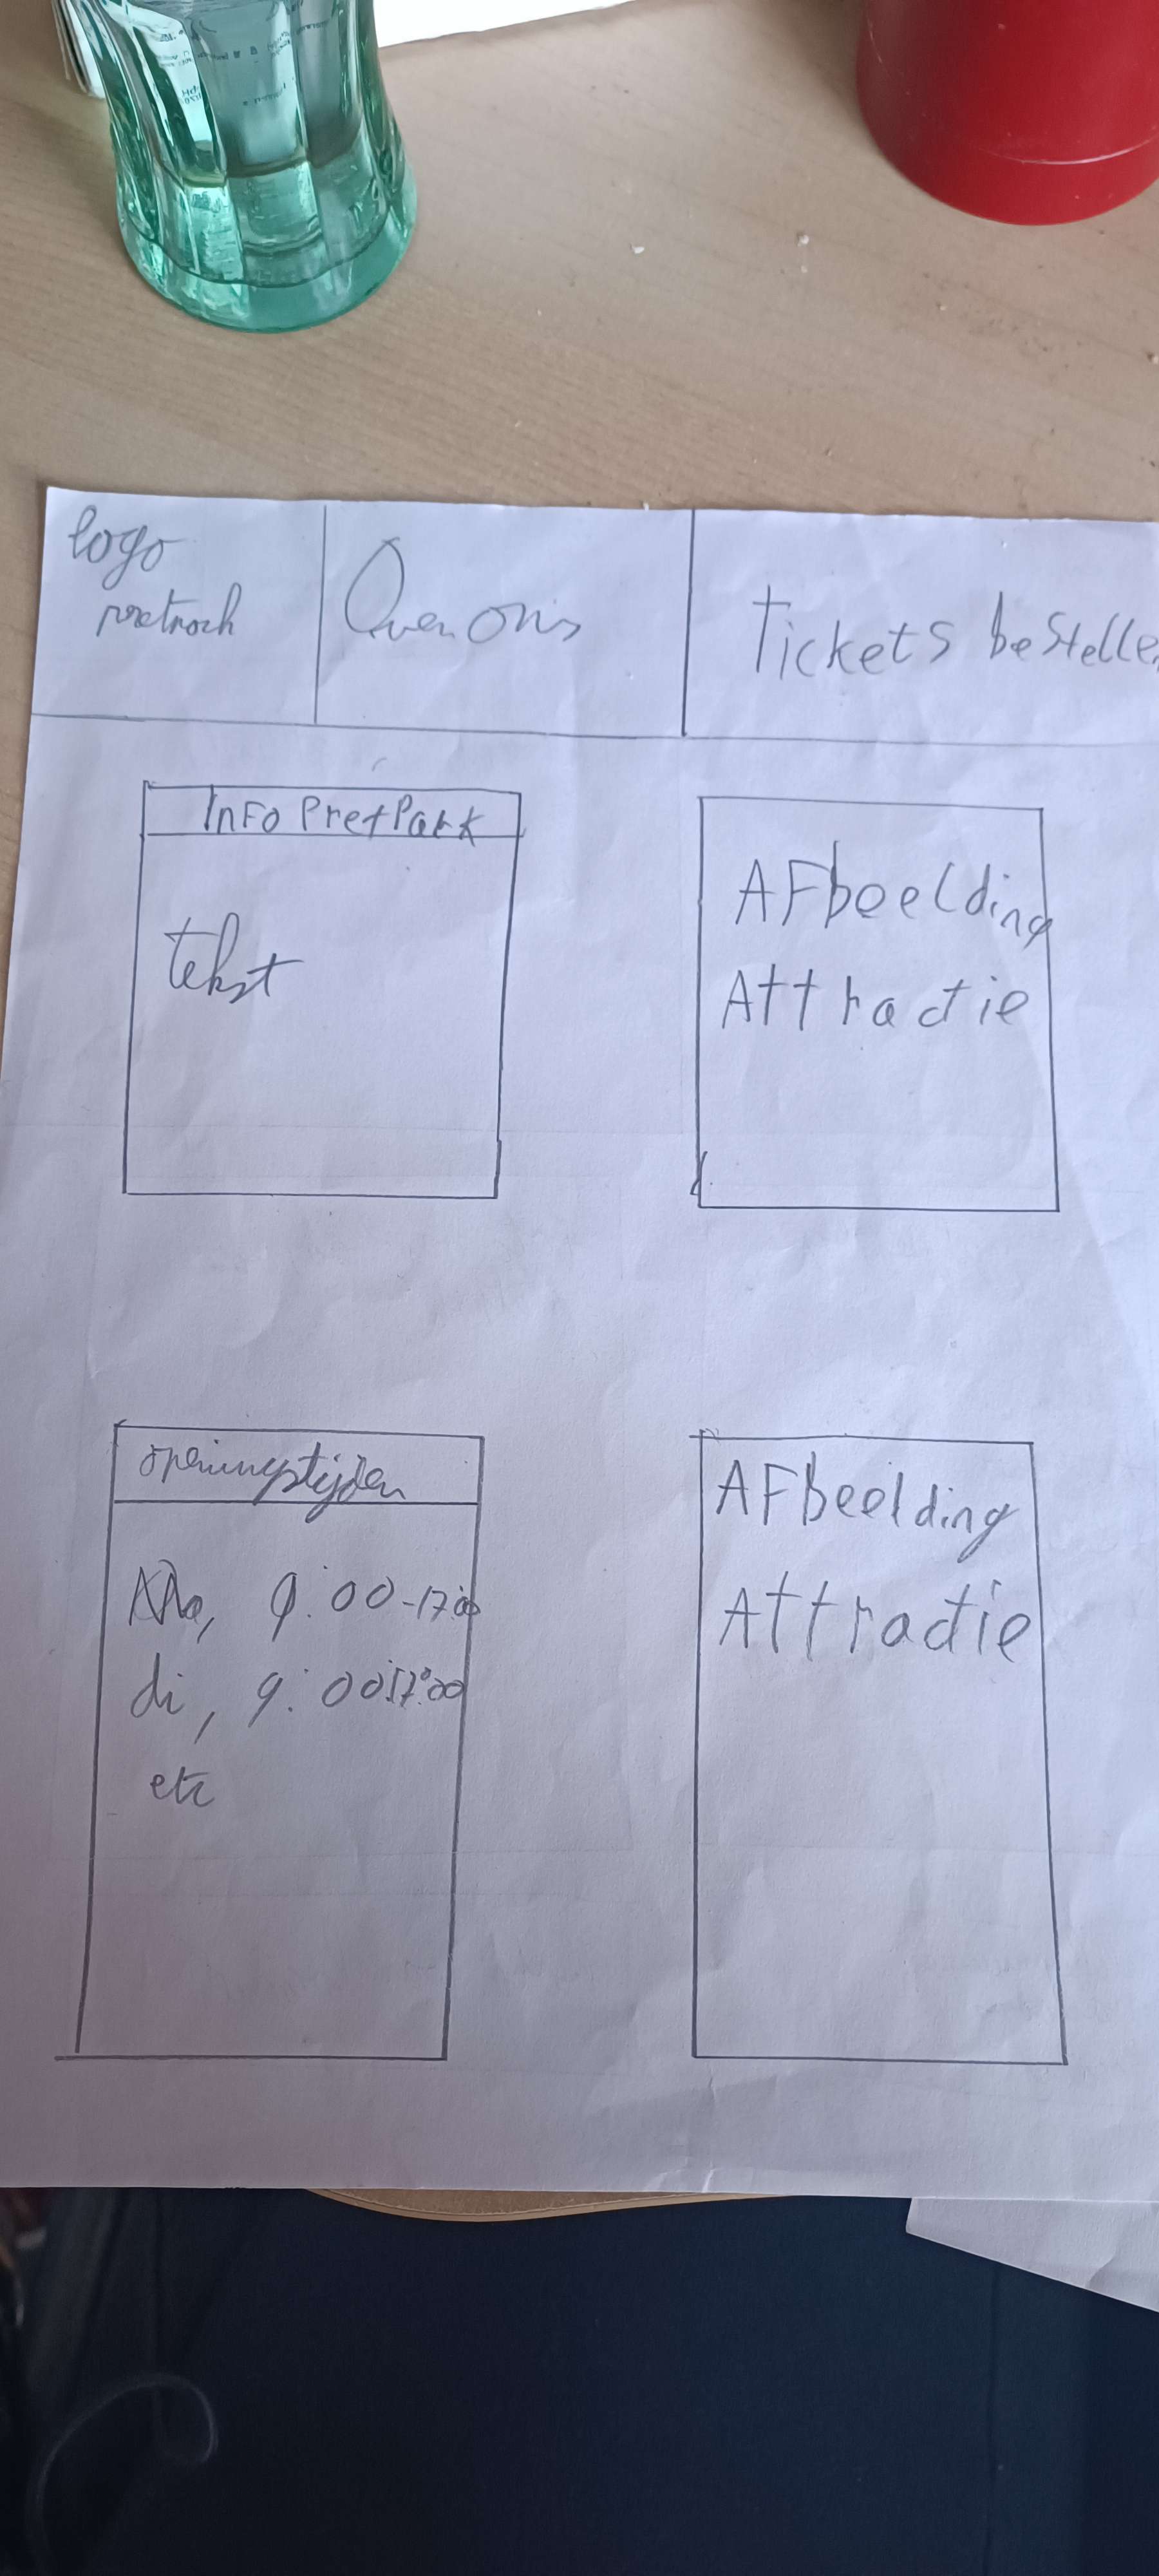 logo
pretpark
Over ons
Tickets bestelle
Info PretPark
tekst
AFbeelding
Attractie
openingstijden
Ma, 9:00-17:00
di, 9:00-17:00
etc
AFbeelding
Attractie